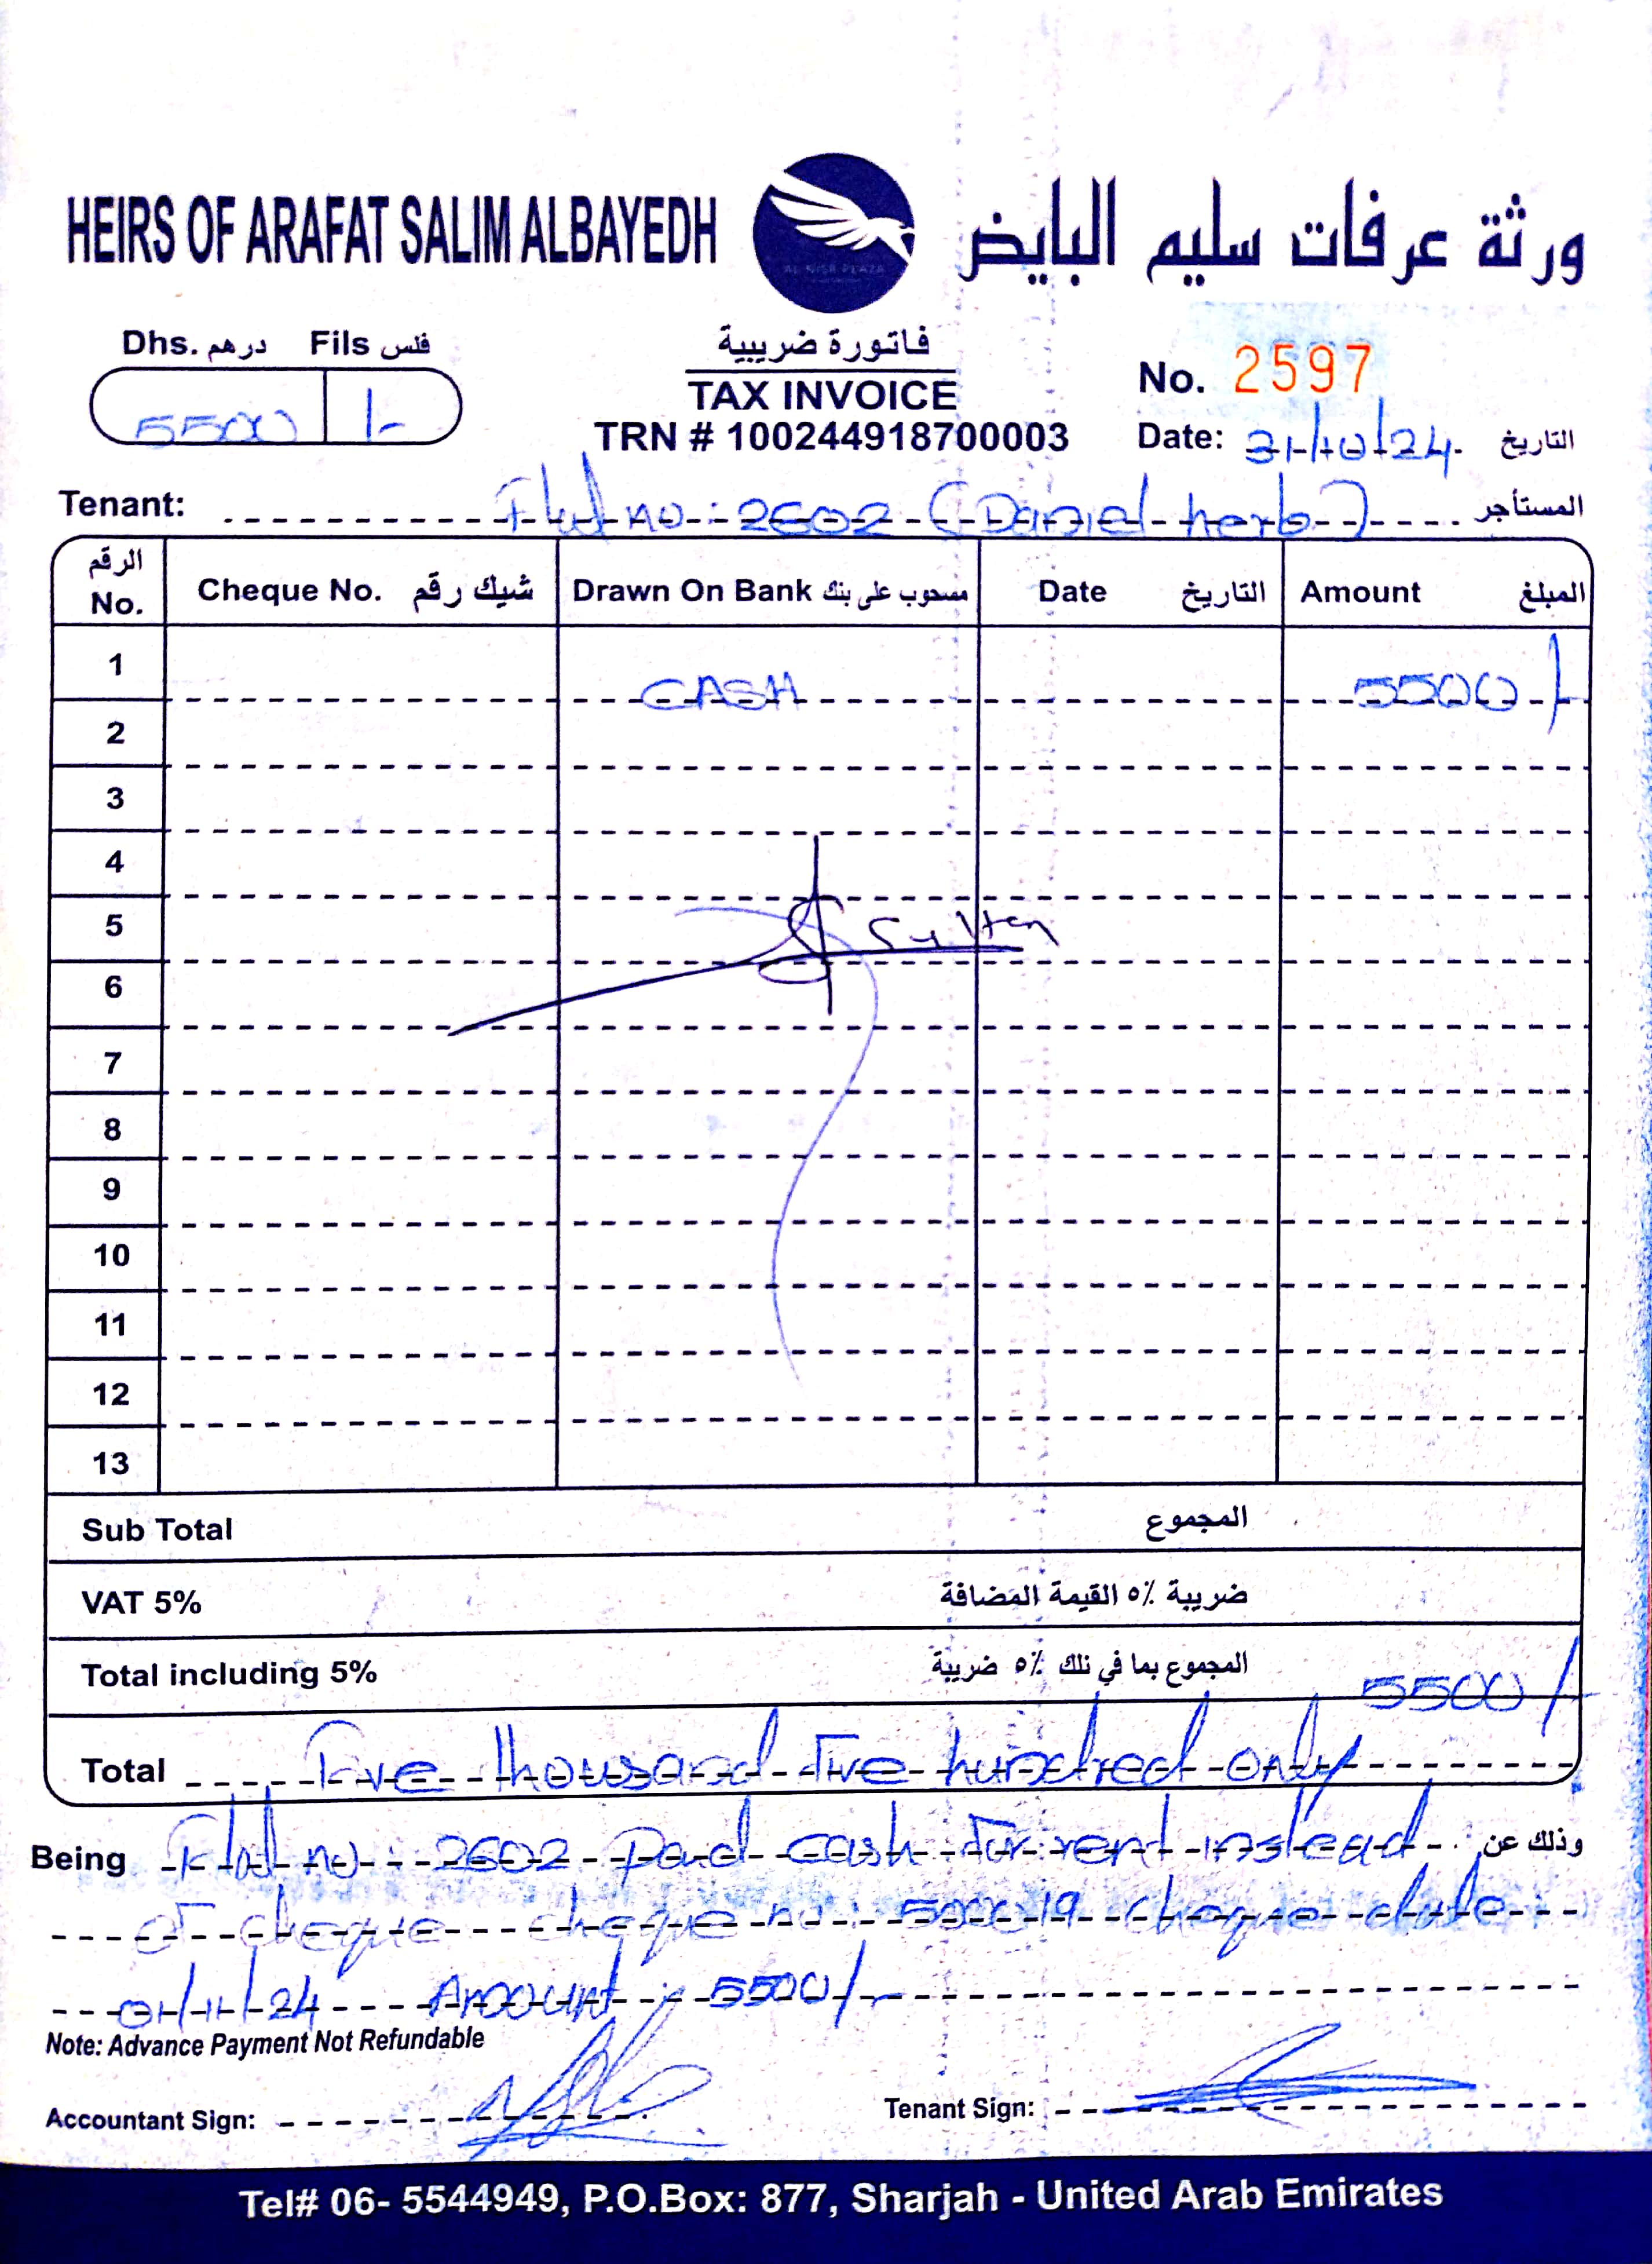 HEIRS OF ARAFAT SALIM ALBAYEDH
AL NISR PLAZA
ورثة عرفات سليم البايض
Dhs. درهم Fils فلس
5500 /-
فاتورة ضريبية
TAX INVOICE
TRN # 100244918700003
No. 2597
Date: 31/10/24. التاريخ
Tenant: Flat no: 2602 (Daniel herb) المستأجر
الرقم No. Cheque No. شيك رقم Drawn On Bank مسحوب على بنك Date التاريخ Amount المبلغ
1 CASH 5500/-
2
3
4
5 Sultan
6
7
8
9
10
11
12
13
Sub Total المجموع
VAT 5% ضريبة ٥٪ القيمة المضافة
Total including 5% المجموع بما في ذلك ٥٪ ضريبة 5500/-
Total Five thousand five hundred only
Being Flat no: 2602 paid cash for rent instead وذلك عن
of cheque cheque no: 500019 cheque date:
01/11/24 Amount: 5500/-
Note: Advance Payment Not Refundable
Accountant Sign: Tenant Sign:
Tel# 06- 5544949, P.O.Box: 877, Sharjah - United Arab Emirates